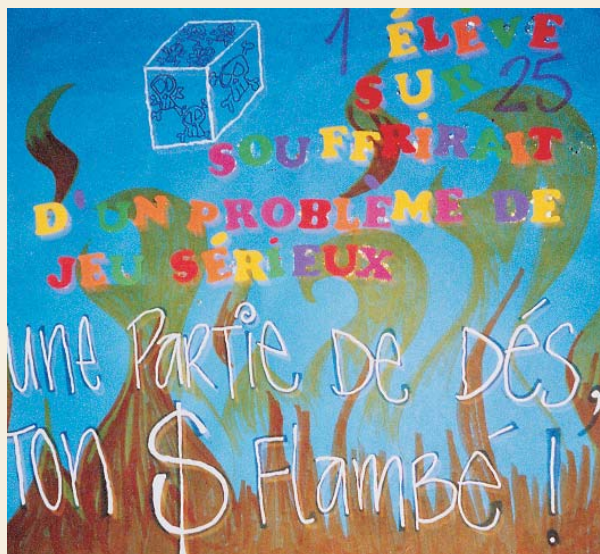 1 ÉLÈVE
SUR 25
SOUFFRIRAIT
D'UN PROBLÈME DE
JEU SÉRIEUX
une Partie De Dés,
Ton $ Flambé !